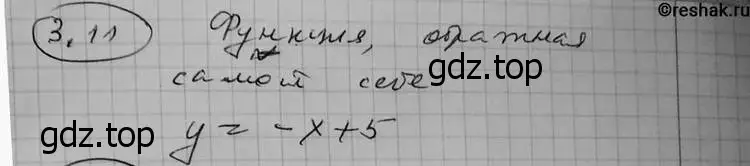 ©reshak.ru
3.11 Функция, обратная
самой себе
gdz.top
y = -x+5
gdz.top